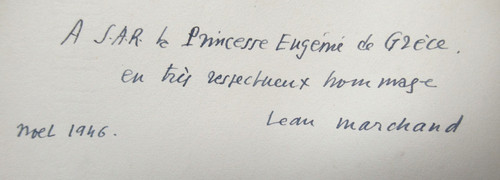 A S.A.R. la Princesse Eugénie de Grèce.
en très respectueux hommage
Jean Marchand
Noel 1946.